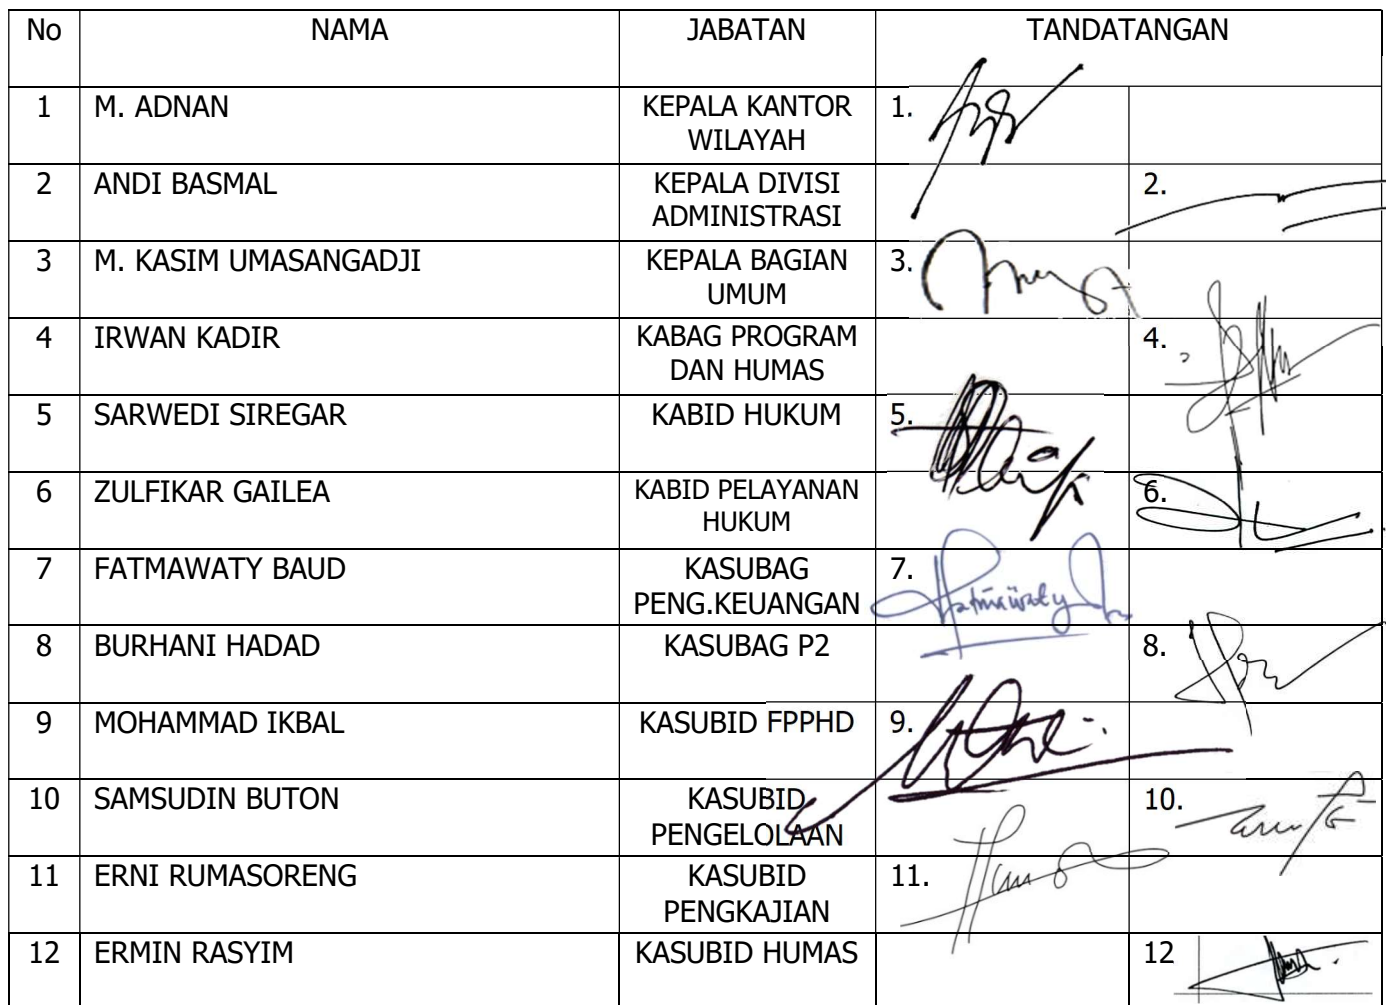 No NAMA JABATAN TANDATANGAN
1 M. ADNAN KEPALA KANTOR 1.
WILAYAH
2 ANDI BASMAL KEPALA DIVISI 2.
ADMINISTRASI
3 M. KASIM UMASANGADJI KEPALA BAGIAN 3.
UMUM
4 IRWAN KADIR KABAG PROGRAM 4.
DAN HUMAS
5 SARWEDI SIREGAR KABID HUKUM 5.
6 ZULFIKAR GAILEA KABID PELAYANAN 6.
HUKUM
7 FATMAWATY BAUD KASUBAG 7.
PENG.KEUANGAN Fatmawaty
8 BURHANI HADAD KASUBAG P2 8.
9 MOHAMMAD IKBAL KASUBID FPPHD 9.
10 SAMSUDIN BUTON KASUBID 10.
PENGELOLAAN
11 ERNI RUMASORENG KASUBID 11.
PENGKAJIAN
12 ERMIN RASYIM KASUBID HUMAS 12